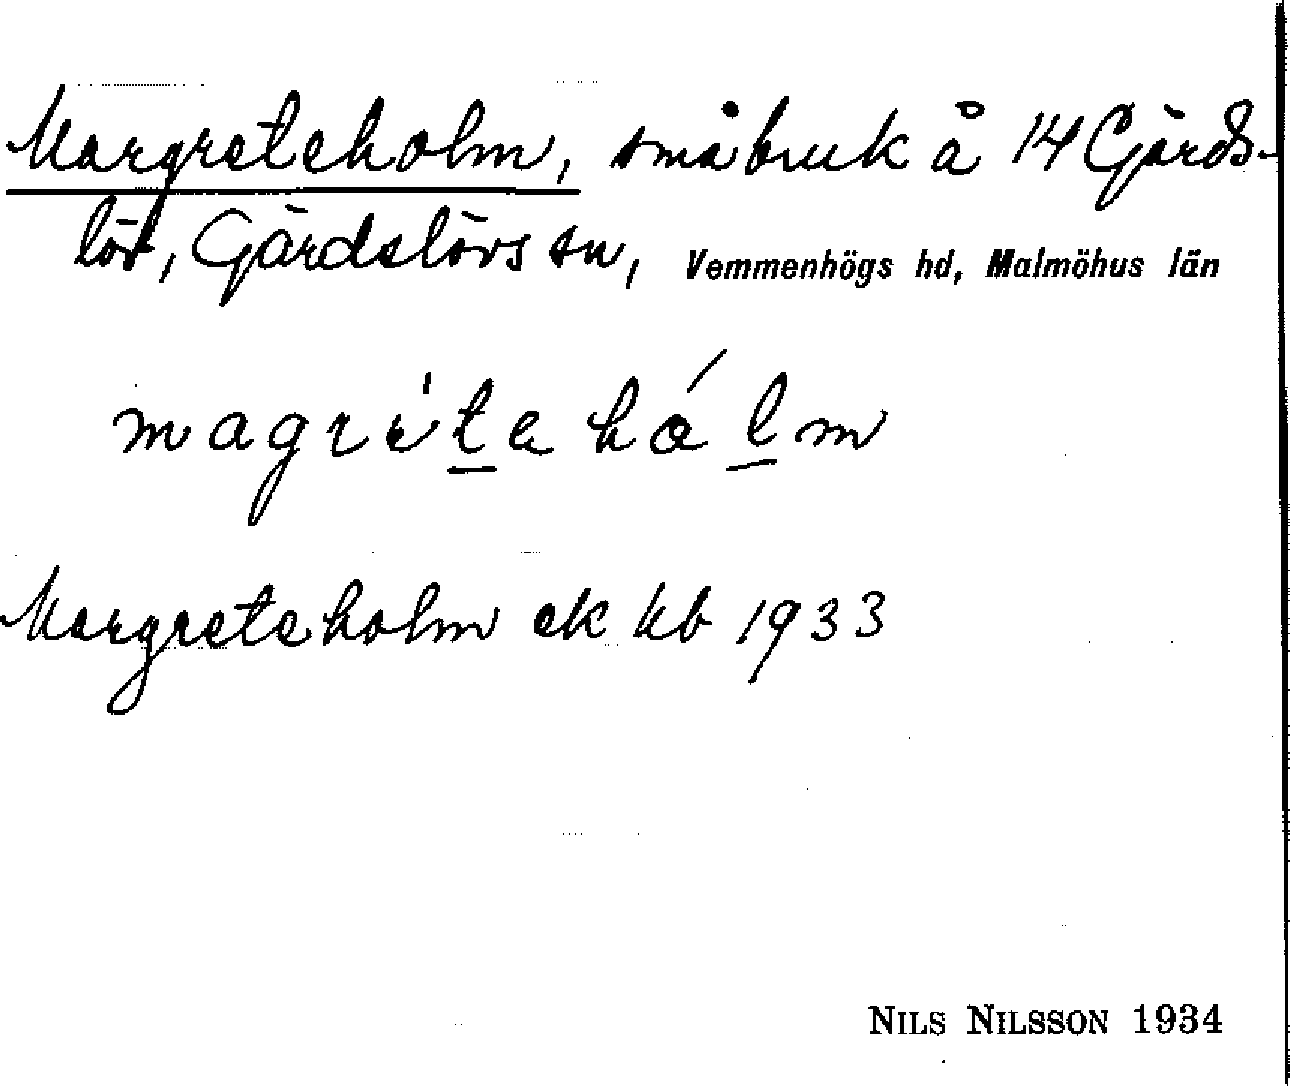 Margreteholm, småbruk å 14 Gärds-
löv, Gärdslövs sn, Vemmenhögs hd, Malmöhus län
magrìtahálm
Margreteholm ek kb 1933
NILS NILSSON 1934